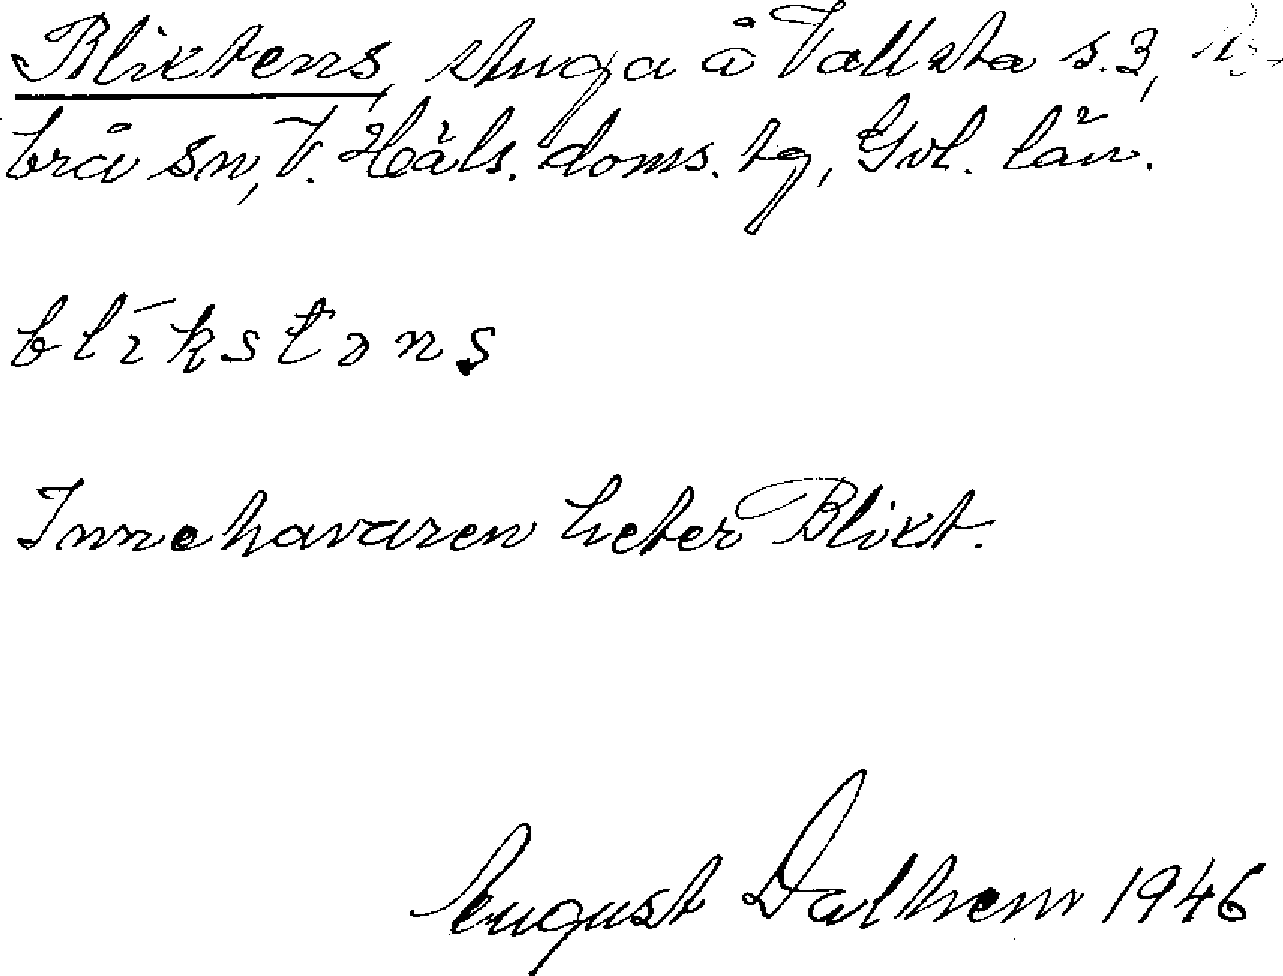 Bliktens, stuga å Vallsta s. 3, Ar-
brå sn, V. Häls. doms. tg, Gvl. län.
blìkstəns
Innehavaren heter Blikt.
August Dalhem 1946